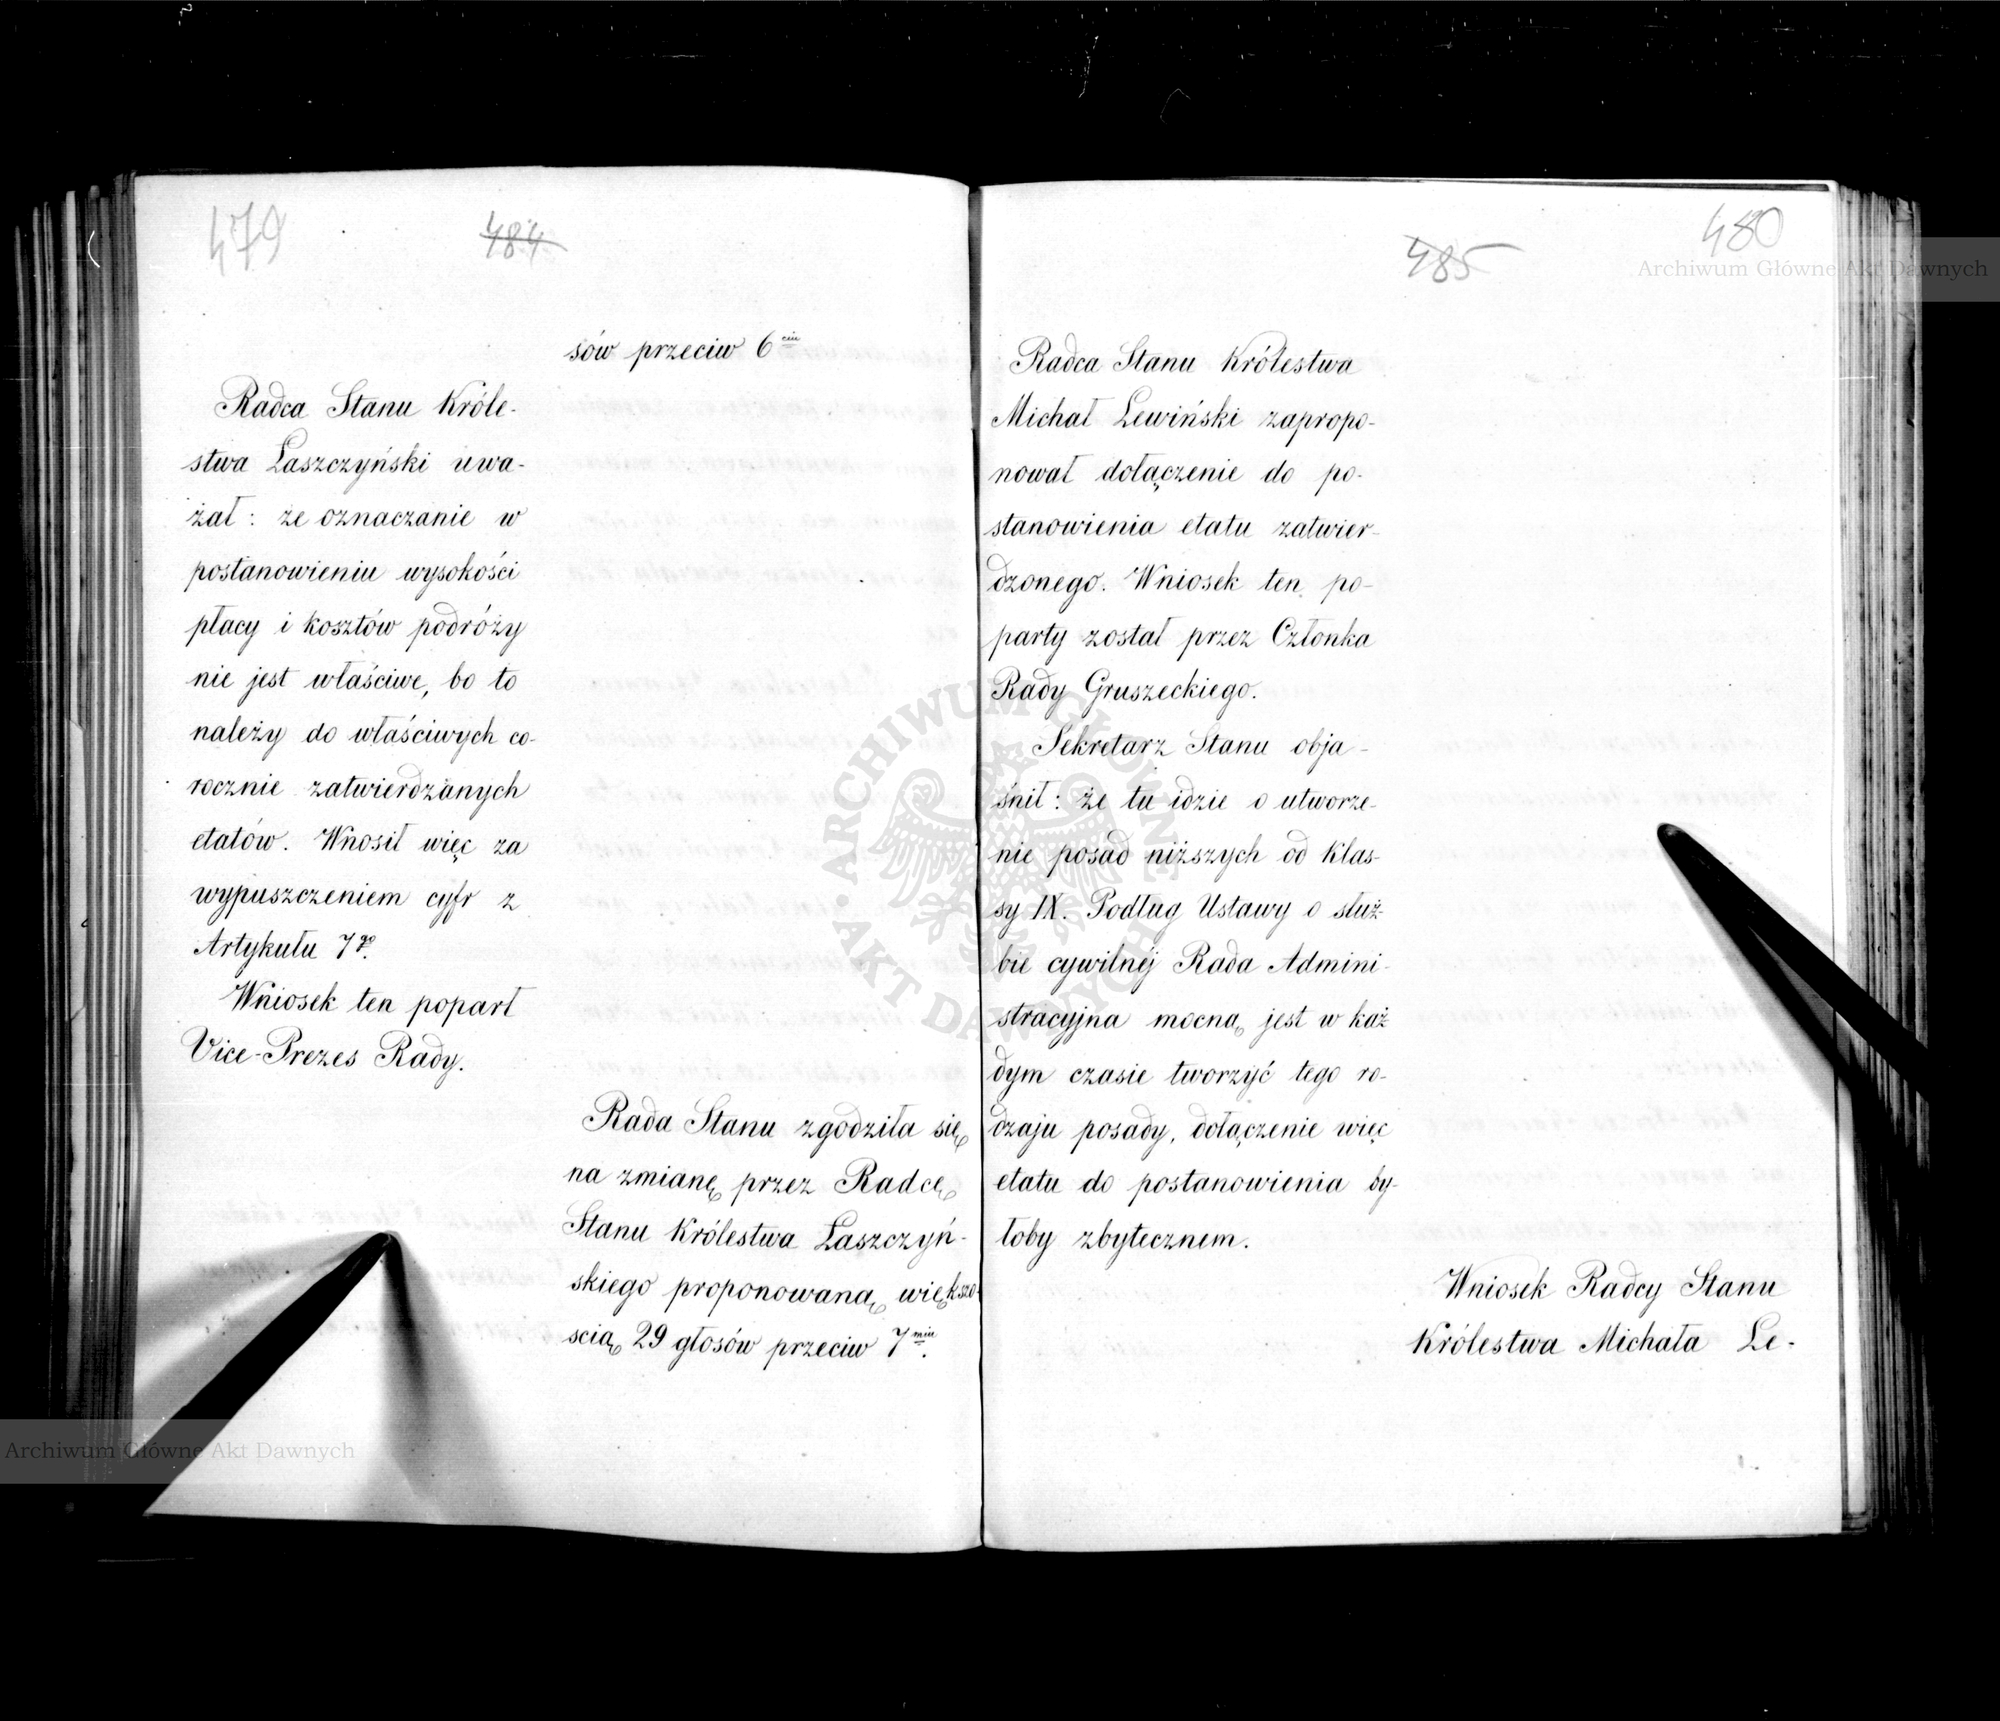 479
484
sów przeciw 6ciu
Radca Stanu Króle-
stwa Łaszczyński uwa-
żał: że oznaczanie w
postanowieniu wysokości
płacy i kosztów podróży
nie jest właściwe, bo to
należy do właściwych co-
rocznie zatwierdzanych
etatów. Wnosił więc za
wypuszczeniem cyfr z
Artykułu 7go.
Wniosek ten poparł
Vice-Prezes Rady.
Rada Stanu zgodziła się
na zmianę przez Radcę
Stanu Królestwa Łaszczyń-
skiego proponowaną większo-
scią 29 głosów przeciw 7miu.
480
485
Radca Stanu Królestwa
Michał Lewiński zapropo-
nował dołączenie do po-
stanowienia etatu zatwier-
dzonego. Wniosek ten po-
party został przez Członka
Rady Gruszeckiego.
Sekretarz Stanu obja-
śnił: że tu idzie o utworze-
nie posad niższych od klas-
sy IX. Podług Ustawy o służ-
bie cywilnéj Rada Admini-
stracyjna mocną jest w każ
dym czasie tworzyć tego ro-
dzaju posady, dołączenie więc
etatu do postanowienia by-
łoby zbytecznem.
Wniosek Radcy Stanu
Królestwa Michała Le-
Archiwum Główne Akt Dawnych
ARCHIWUM GŁÓWNE
AKT DAWNYCH
Archiwum Główne Akt Dawnych